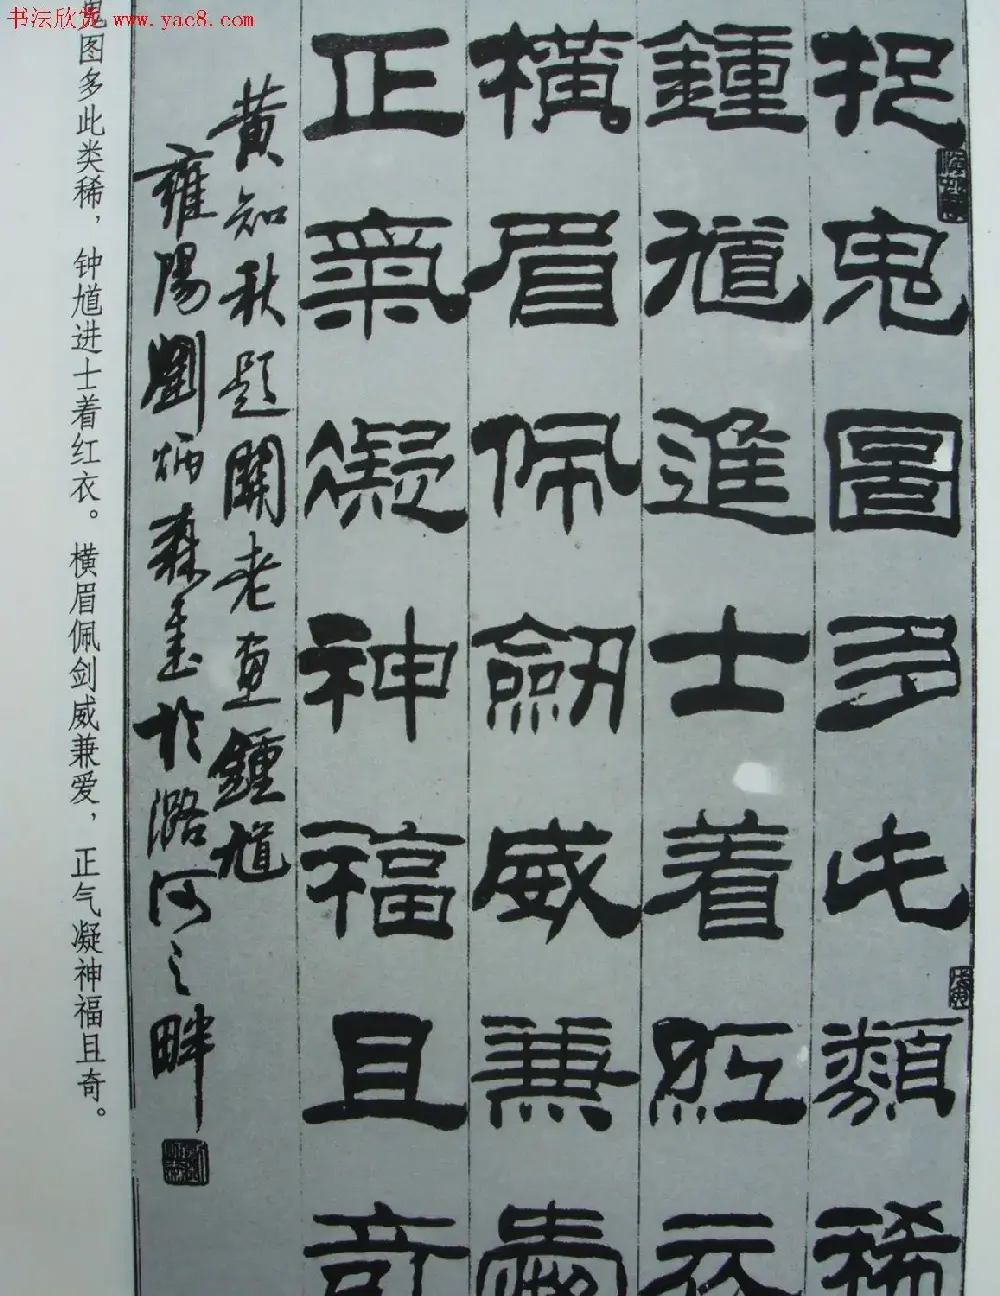 书法欣赏
www.yac8.com
捉鬼圖多此類稀
鍾馗進士着紅衣
橫眉佩劒威兼愛
正氣凝神福且奇
黄知秋題關老画鍾馗
雍陽劉炳森書於潞河之畔
鬼图多此类稀，钟馗进士着红衣。横眉佩剑威兼爱，正气凝神福且奇。